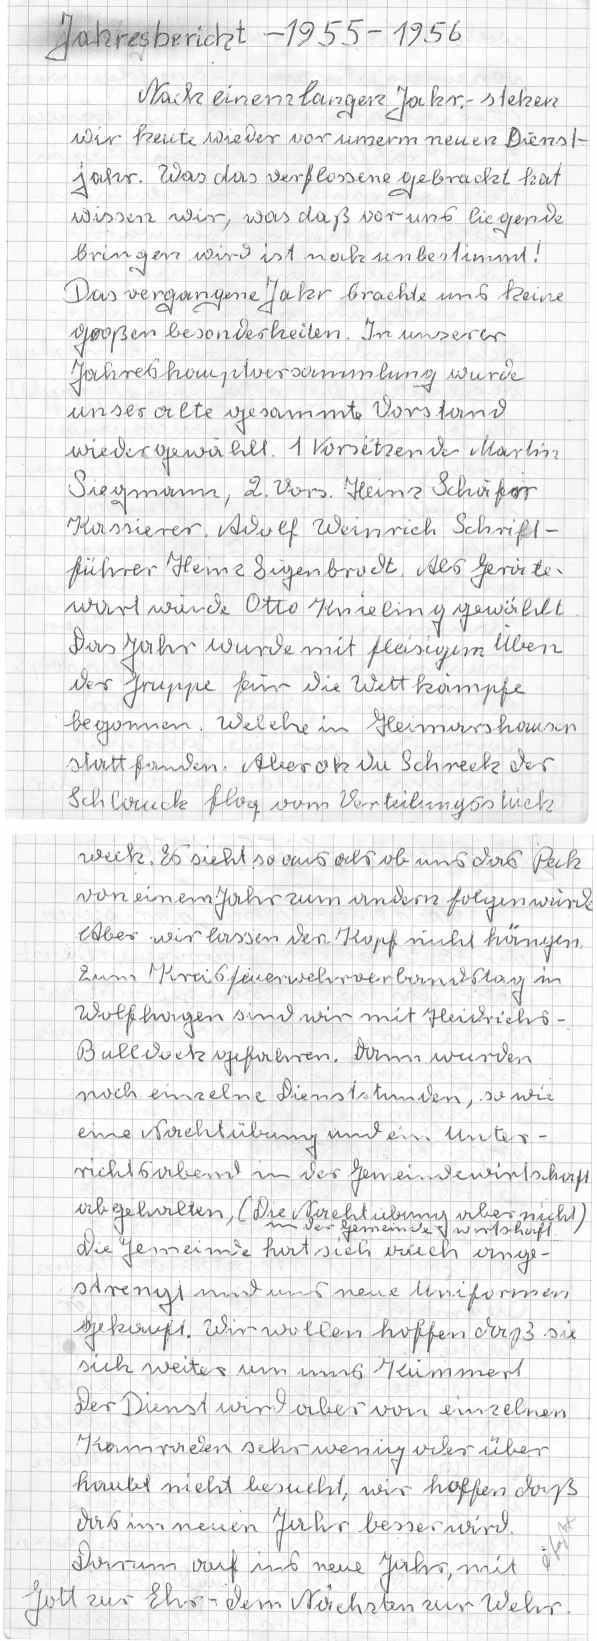 Jahresbericht - 1955 - 1956
Nach einem langen Jahr, - stehen
wir heute wieder vor unserm neuen Dienst-
jahr. Was das verflossene gebracht hat
wissen wir, was daß vor uns liegende
bringen wird ist noch unbestimmt!
Das vergangene Jahr brachte uns keine
großen besonderheiten. In unserer
Jahreshauptversammlung wurde
unser alte gesammte Vorstand
wiedergewählt. 1 Vorsitzende Martin
Siegmann, 2. Vors. Heinz Schäfer
Kassierer. Adolf Weinrich Schrift-
führer Heinz Sigenbrodt. Als Geräte-
wart wurde Otto Knieling gewählt
Das Jahr wurde mit fleisigem Üben
der Gruppe für die Wettkämpfe
begonnen. Welche in Heimarshausen
stattfanden. Aber oh du Schreck der
Schlauch flog vom Verteilungsstück
weck. Es sieht so aus als ob uns das Pech
von einem Jahr zum andern folgen würde
Aber wir lassen den Kopf nicht hängen.
Zum Kreisfeuerwehrverbandstag in
Wolfhagen sind wir mit Heidrichs-
Bulldock gefahren. Dann wurden
noch einzelne Dienststunden, so wie
eine Nachtübung und ein Unter-
richtsabend in der Gemeindewirtschaft
abgehalten, (Die Nachtübung aber nicht)
in der Gemeindewirtschaft
Die Gemeinde hat sich auch ange-
strengt und uns neue Uniformen
gekauft. Wir wollen hoffen daß sie
sich weiter um uns Kümmert
Der Dienst wird aber von einzelnen
Kamraden sehr wenig oder über
haubt nicht besucht, wir hoffen daß
das im neuen Jahr besser wird.
Darum auf ins neue Jahr, mit
Gott zur Ehr - dem Nächsten zur Wehr.